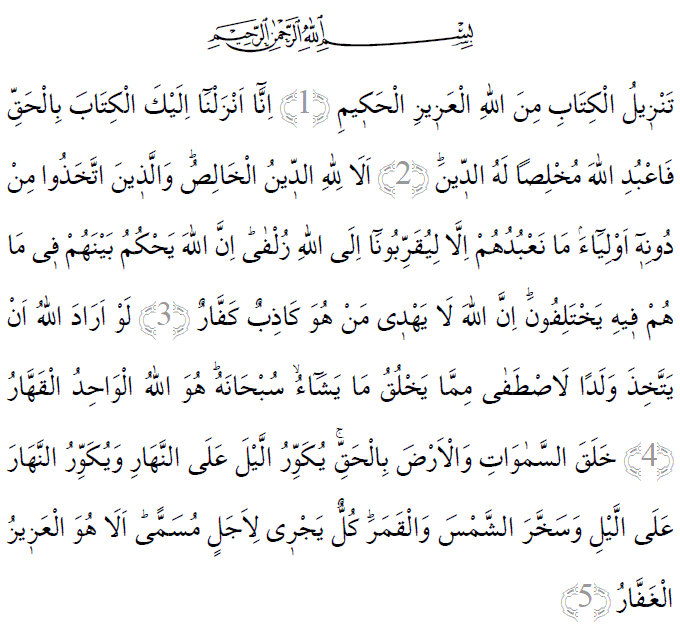 بِسْمِ اللهِ الرَّحْمٰنِ الرَّحِيمِ
تَنْزٖيلُ الْكِتَابِ مِنَ اللهِ الْعَزٖيزِ الْحَكٖيمِ ﴿1﴾ اِنَّٓا اَنْزَلْنَٓا اِلَيْكَ الْكِتَابَ بِالْحَقِّ
فَاعْبُدِ اللهَ مُخْلِصًا لَهُ الدّٖينَؕ ﴿2﴾ اَلَا لِلهِ الدّٖينُ الْخَالِصُؕ وَالَّذٖينَ اتَّخَذُوا مِنْ
دُونِهٖٓ اَوْلِيَٓاءَۘ مَا نَعْبُدُهُمْ اِلَّا لِيُقَرِّبُونَٓا اِلَى اللهِ زُلْفٰىؕ اِنَّ اللهَ يَحْكُمُ بَيْنَهُمْ فٖى مَا
هُمْ فٖيهِ يَخْتَلِفُونَؕ اِنَّ اللهَ لَا يَهْدٖى مَنْ هُوَ كَاذِبٌ كَفَّارٌ ﴿3﴾ لَوْ اَرَادَ اللهُ اَنْ
يَتَّخِذَ وَلَدًا لَاصْطَفٰى مِمَّا يَخْلُقُ مَا يَشَٓاءُۙ سُبْحَانَهُؕ هُوَ اللهُ الْوَاحِدُ الْقَهَّارُ
﴿4﴾ خَلَقَ السَّمٰوَاتِ وَالْاَرْضَ بِالْحَقِّۚ يُكَوِّرُ الَّيْلَ عَلَى النَّهَارِ وَيُكَوِّرُ النَّهَارَ
عَلَى الَّيْلِ وَسَخَّرَ الشَّمْسَ وَالْقَمَرَؕ كُلٌّ يَجْرٖى لِاَجَلٍ مُسَمًّىؕ اَلَا هُوَ الْعَزٖيزُ
الْغَفَّارُ ﴿5﴾